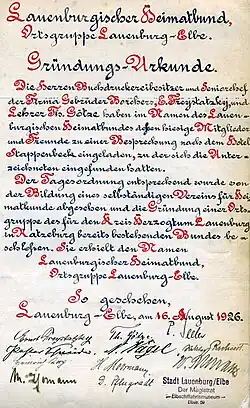 Lauenburgischer Heimatbund,
Ortsgruppe Lauenburg-Elbe.
Gründungs-Urkunde.
Die Herren Buchdruckereibesitzer und Seniorchef
der Firma Gebrüder Borchers, E. Freystatzky, und
Lehrer Th. Götze haben im Namen des Lauen-
burgischen Heimatbundes dessen hiesige Mitglieder
und Freunde zu einer Besprechung nach dem Hotel
Stappenbeck eingeladen, zu der sich die Unter-
zeichneten eingefunden hatten.
Der Tagesordnung entsprechend wurde von
der Bildung eines selbständigen Vereins für Hei-
matkunde abgesehen und die Gründung einer Orts-
gruppe des für den Kreis Herzogtum Lauenburg
in Ratzeburg bereits bestehenden Bundes be-
schlossen. Sie erhielt den Namen
Lauenburgischer Heimatbund
Ortsgruppe Lauenburg-Elbe.
So geschehen,
Lauenburg-Elbe, am 16. August 1926.
Th. Götze
Stadt Lauenburg/Elbe
Der Magistrat
Elbschiffahrtsmuseum
Elbstr. 59